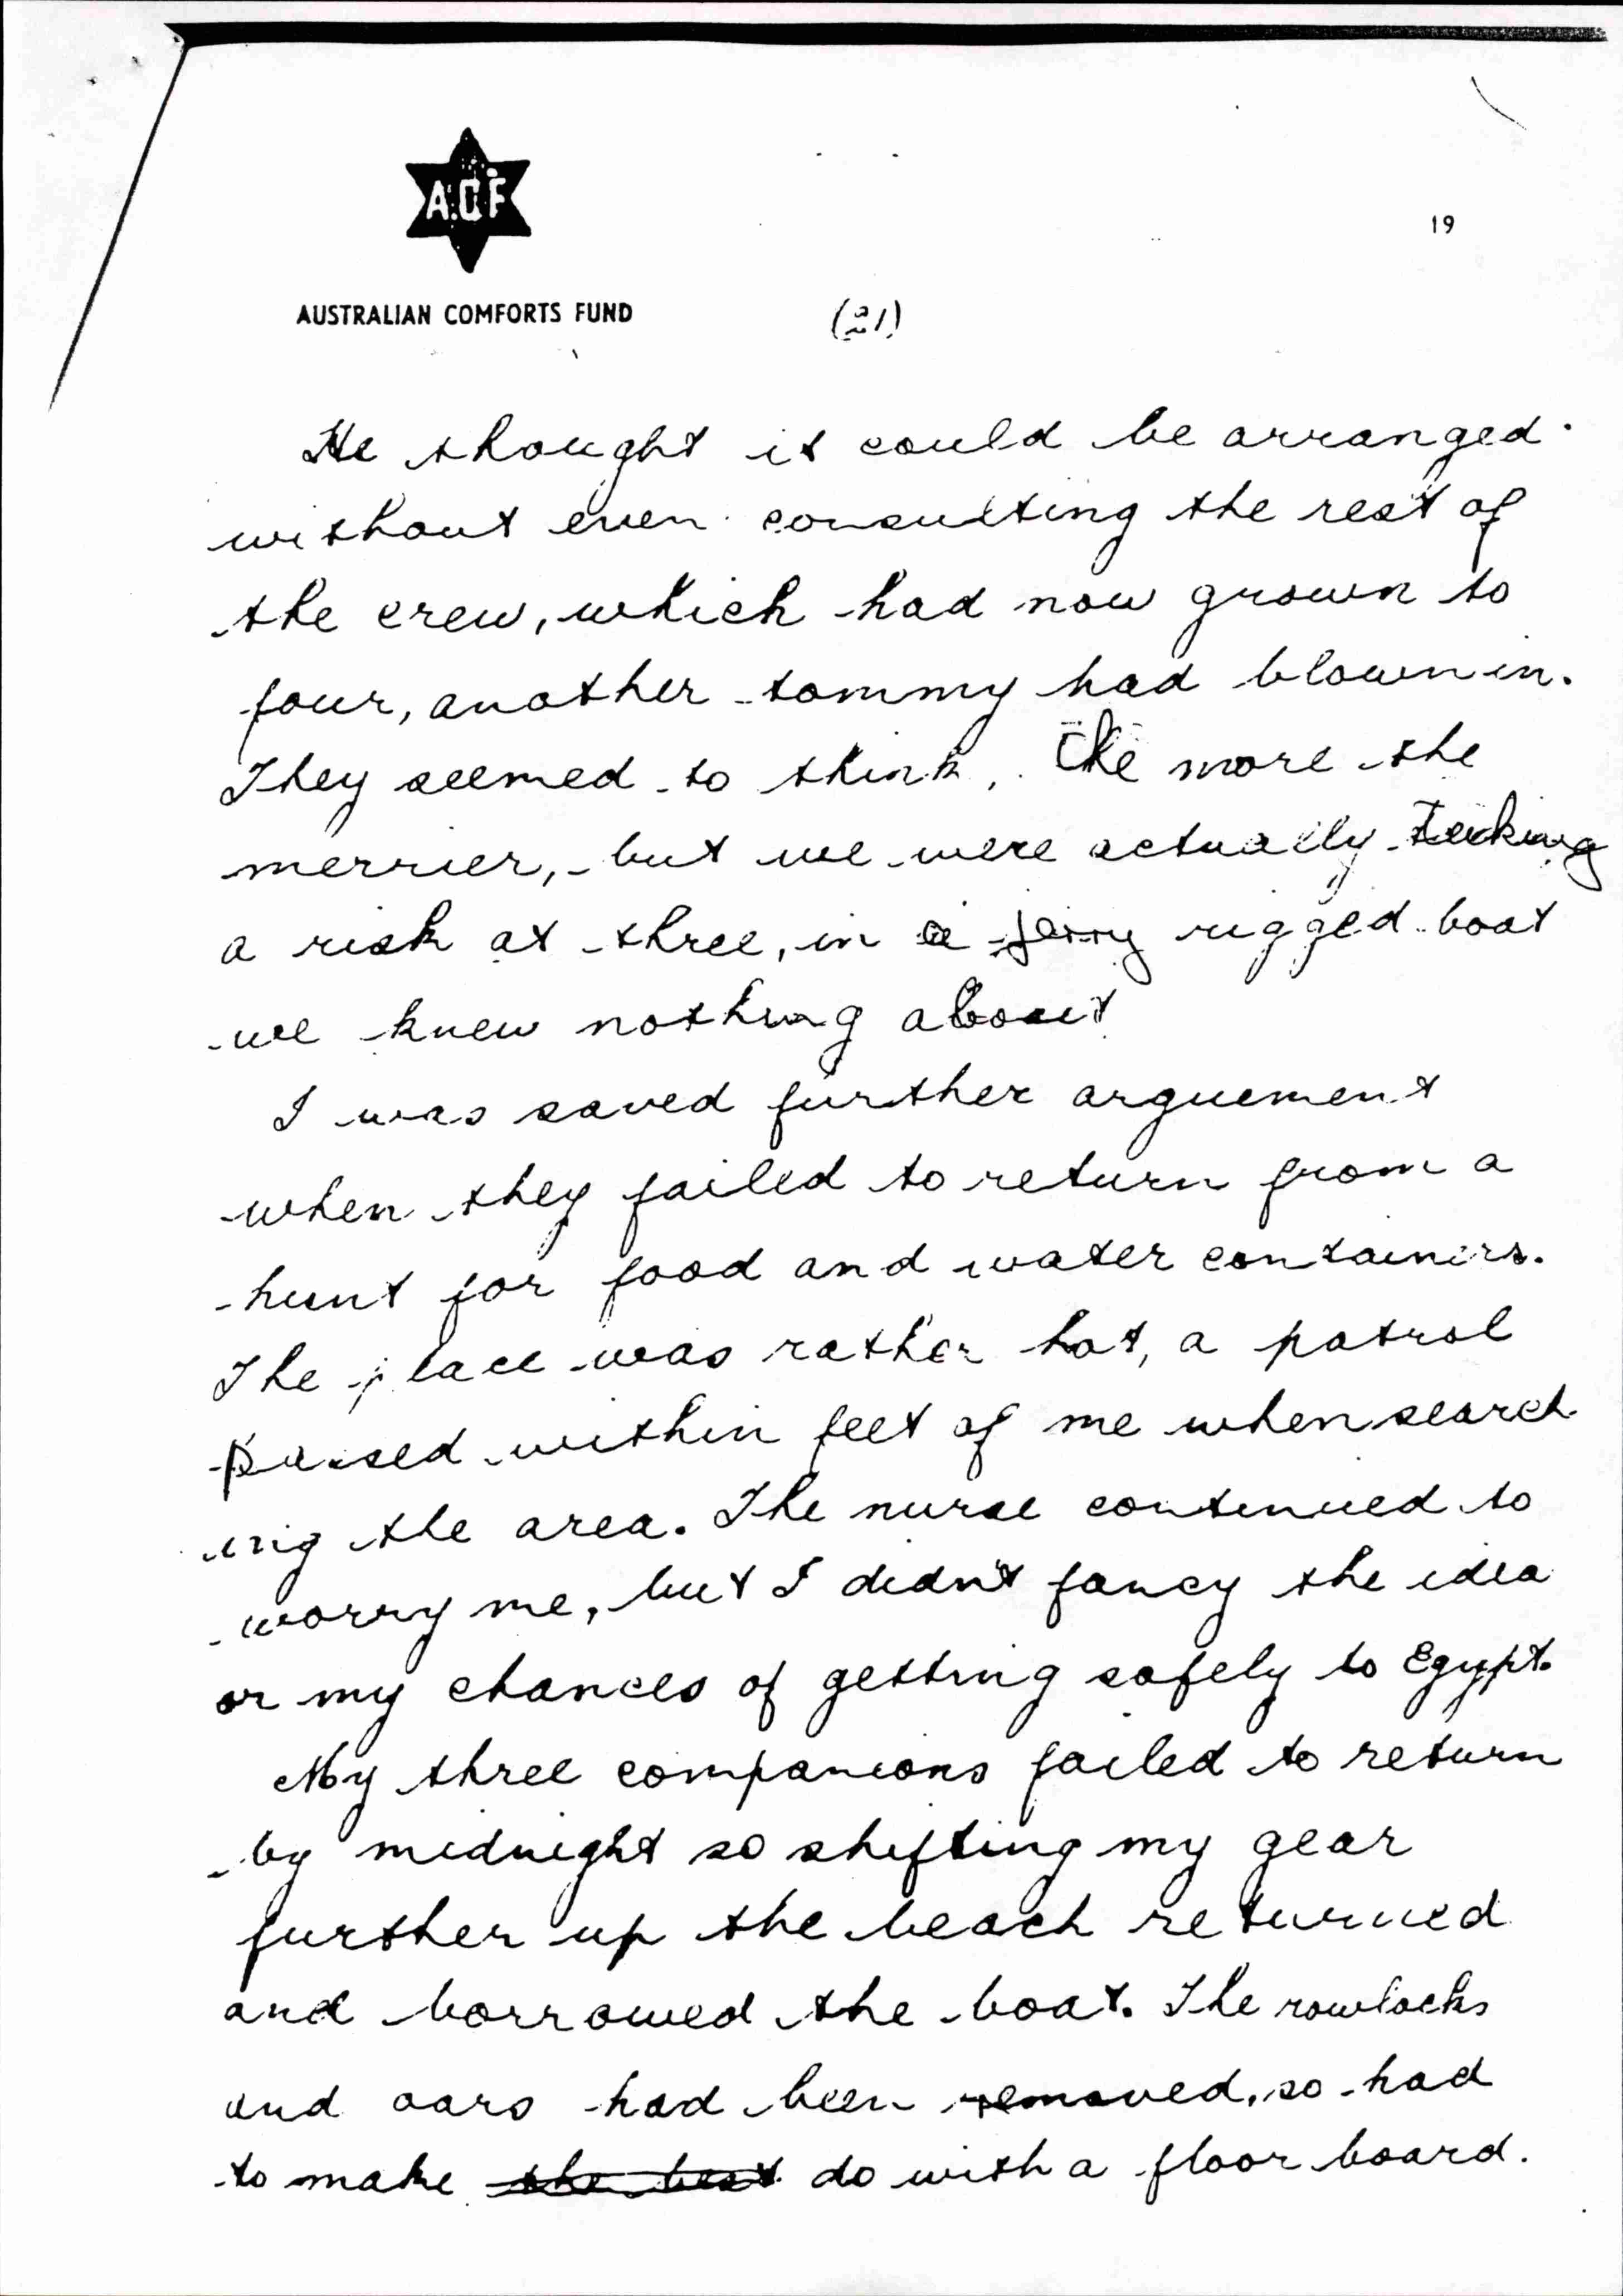 A.C.F
19
AUSTRALIAN COMFORTS FUND
(21)
He thought it could be arranged
without even consulting the rest of
the crew, which had now grown to
four, another tommy had blown in.
They seemed to think, The more the
merrier, but we were actually taking
a risk at three, in a jerry rigged boat
we knew nothing about
I was saved further arguement
when they failed to return from a
hunt for food and water containers.
The place was rather hot, a patrol
passed within feet of me when search
ing the area. The nurse continued to
worry me, but I didn't fancy the idea
or my chances of getting safely to Egypt.
My three companions failed to return
by midnight so shifting my gear
further up the beach returned
and borrowed the boat. The rowlocks
and oars had been removed, so had
to make the best do with a floor board.